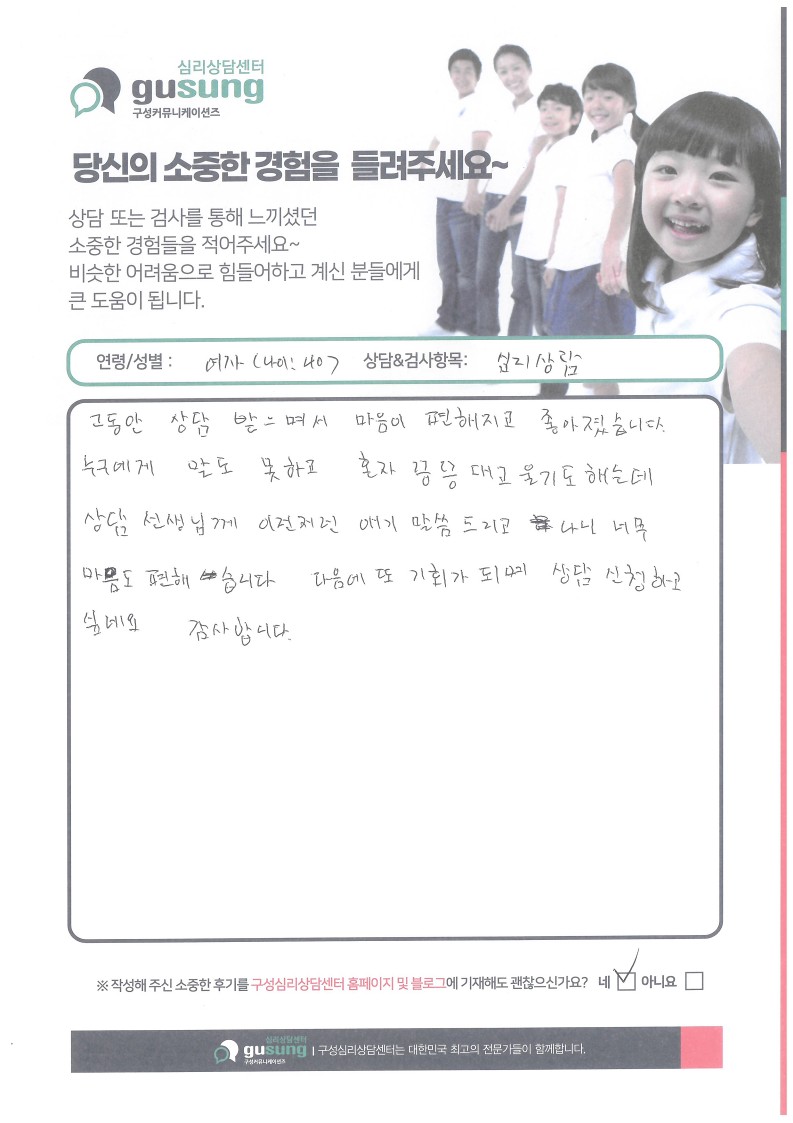 심리상담센터
gusung
구성커뮤니케이션즈
당신의 소중한 경험을 들려주세요~
상담 또는 검사를 통해 느끼셨던
소중한 경험들을 적어주세요~
비슷한 어려움으로 힘들어하고 계신 분들에게
큰 도움이 됩니다.
연령/성별 : 여자 (나이: 40) 상담&검사항목: 심리상담
그동안 상담 받으며서 마음이 편해지고 좋아졌습니다.
누구에게 말도 못하고 혼자 끙끙 대고 울기도 해는데
상담 선생님께 이런저런 얘기 말씀 드리고 나니 너무
마음도 편해 습니다 다음에 또 기회가 되며 상담 신청하고
싶네요 감사합니다.
※ 작성해 주신 소중한 후기를 구성심리상담센터 홈페이지 및 블로그에 기재해도 괜찮으신가요? 네 아니요
심리상담센터
gusung
구성커뮤니케이션즈
구성심리상담센터는 대한민국 최고의 전문가들이 함께합니다.